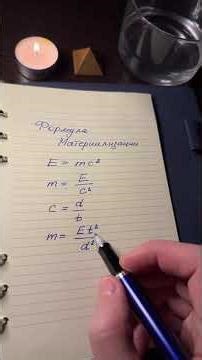 Формула
Материализации
E = mc²
m = E/c²
c = d/t
m = Et²/d²